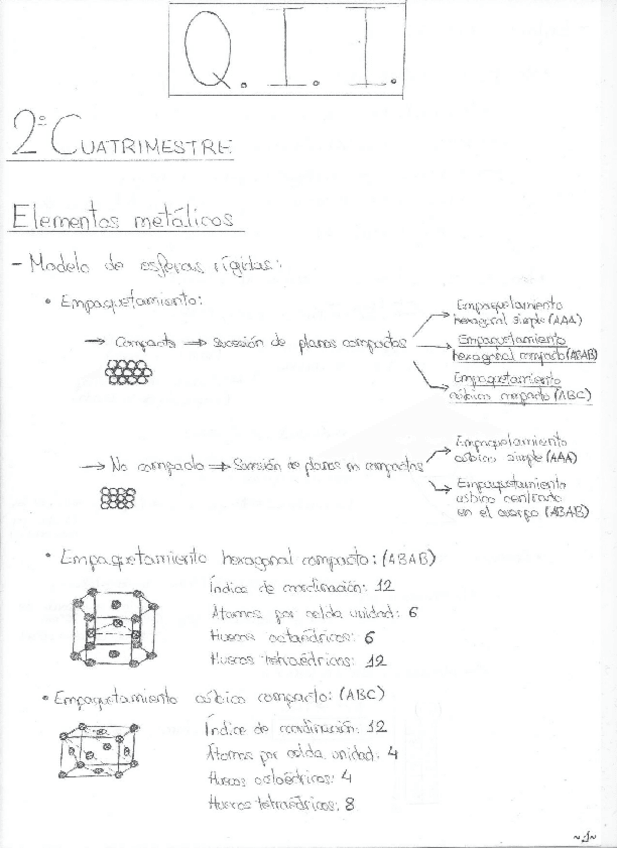 Q.I.I.
2º CUATRIMESTRE
Elementos metálicos
- Modelo de esferas rígidas:
• Empaquetamiento:
→ Compacto → Sucesión de planos compactos
Empaquetamiento
hexagonal simple (AAA)
Empaquetamiento
hexagonal compacto (ABAB)
Empaquetamiento
cúbico compacto (ABC)
→ No compacto → Sucesión de planos no compactos
Empaquetamiento
cúbico simple (AAA)
Empaquetamiento
cúbico centrado
en el cuerpo (ABAB)
• Empaquetamiento hexagonal compacto: (ABAB)
Índice de coordinación: 12
Átomos por celda unidad: 6
Huecos octaédricos: 6
Huecos tetraédricos: 12
• Empaquetamiento cúbico compacto: (ABC)
Índice de coordinación: 12
Átomos por celda unidad: 4
Huecos octaédricos: 4
Huecos tetraédricos: 8
~1~